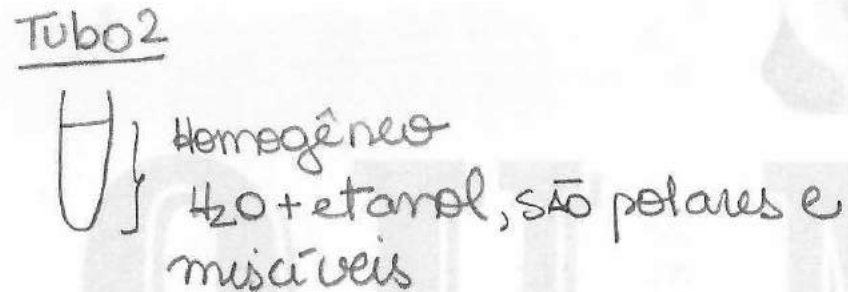 Tubo2
Homogêneo
H₂O + etanol, são polares e
miscíveis